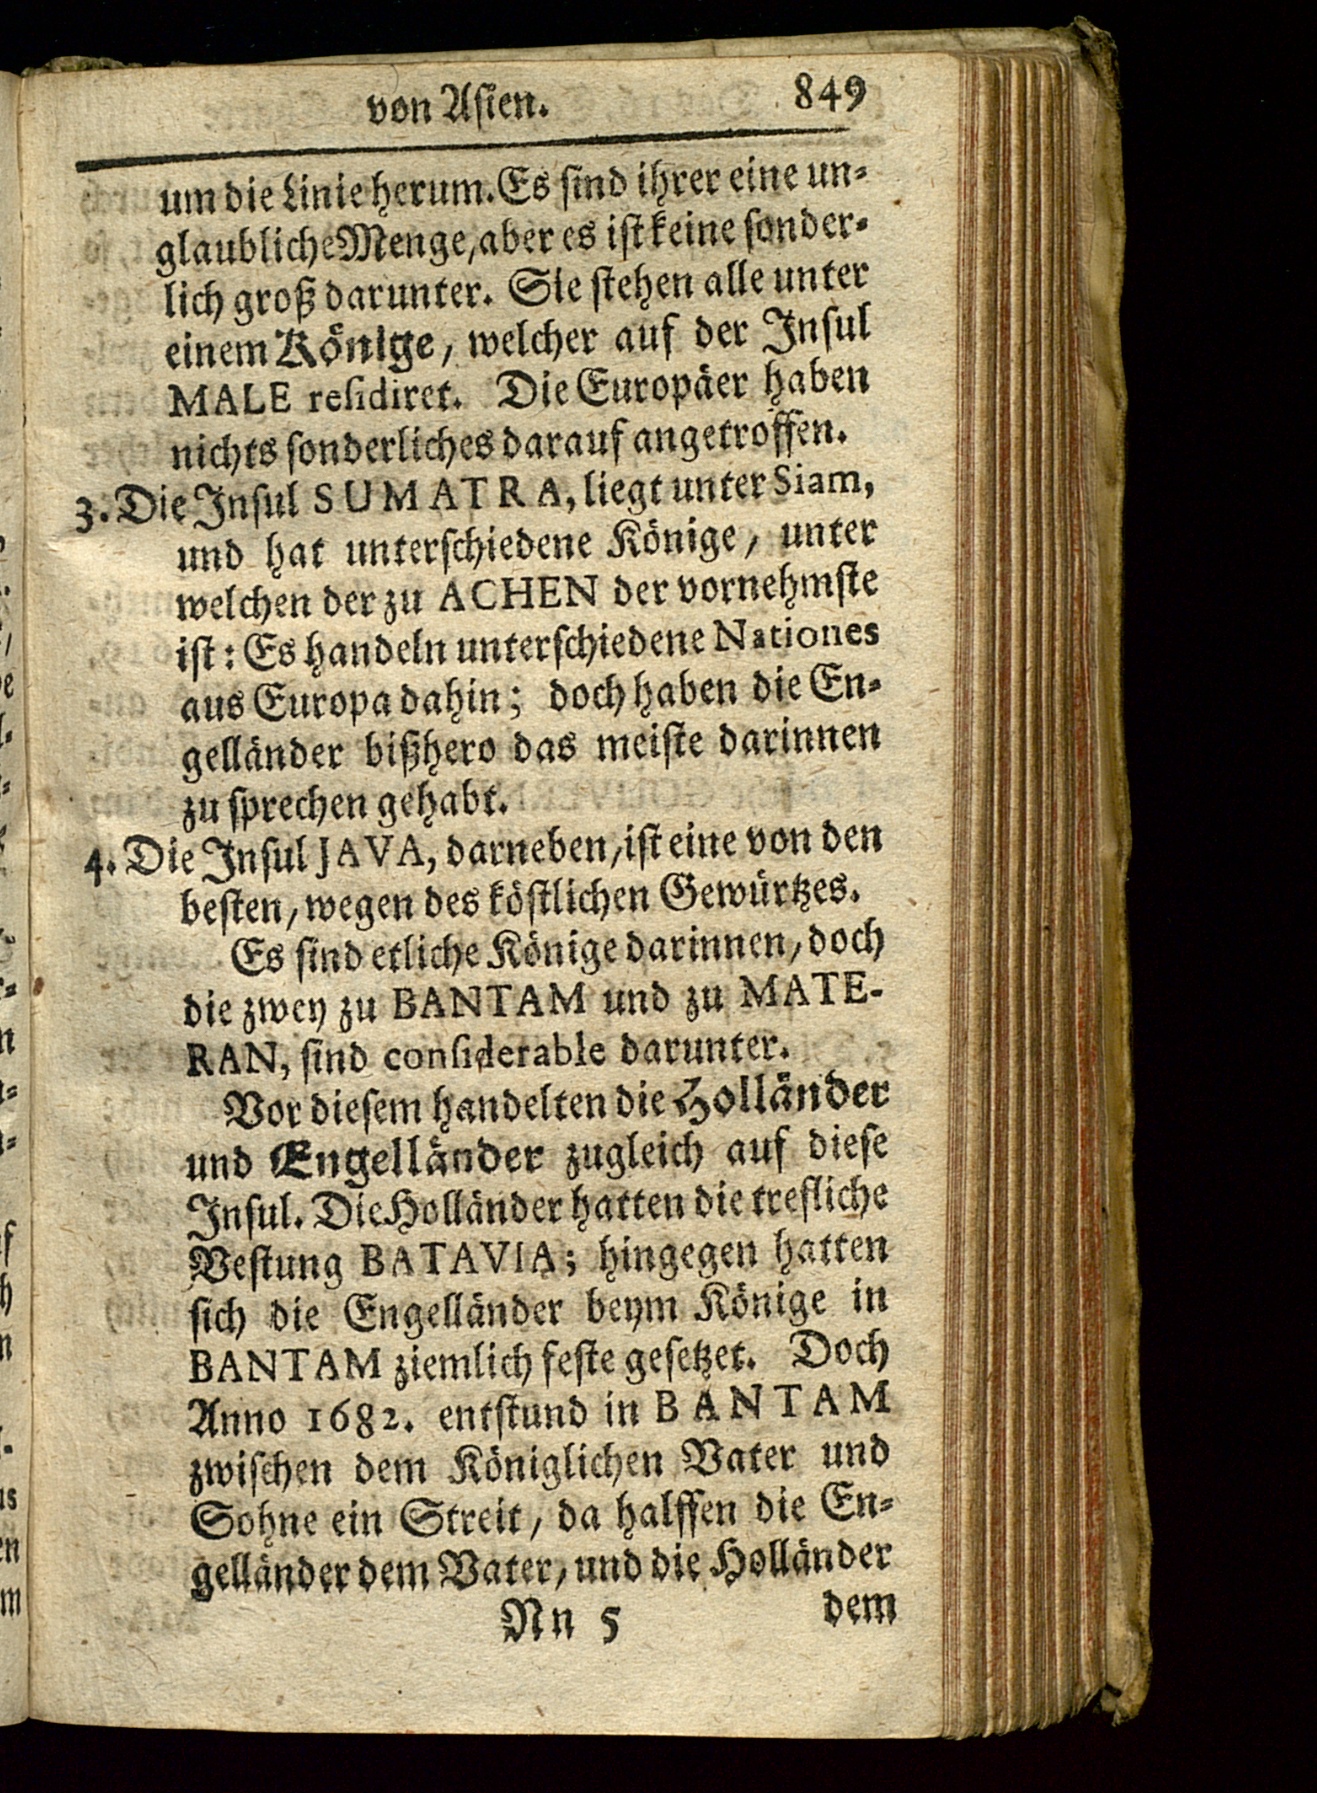 von Asien. 849
um die Linie herum. Es sind ihrer eine un-
glaubliche Menge, aber es ist keine sonder-
lich groß darunter. Sie stehen alle unter
einem Könige, welcher auf der Insul
MALE residiret. Die Europäer haben
nichts sonderliches darauf angetroffen.
3. Die Insul SUMATRA, liegt unter Siam,
und hat unterschiedene Könige, unter
welchen der zu ACHEN der vornehmste
ist: Es handeln unterschiedene Nationes
aus Europa dahin; doch haben die En-
gelländer bißhero das meiste darinnen
zu sprechen gehabt.
4. Die Insul JAVA, darneben, ist eine von den
besten, wegen des köstlichen Gewürtzes.
Es sind etliche Könige darinnen, doch
die zwey zu BANTAM und zu MATE-
RAN, sind considerable darunter.
Vor diesem handelten die Holländer
und Engelländer zugleich auf diese
Insul. Die Holländer hatten die trefliche
Vestung BATAVIA; hingegen hatten
sich die Engelländer beym Könige in
BANTAM ziemlich feste gesetzet. Doch
Anno 1682. entstund in BANTAM
zwischen dem Königlichen Vater und
Sohne ein Streit, da halffen die En-
gelländer dem Vater, und die Holländer
Nn 5 dem